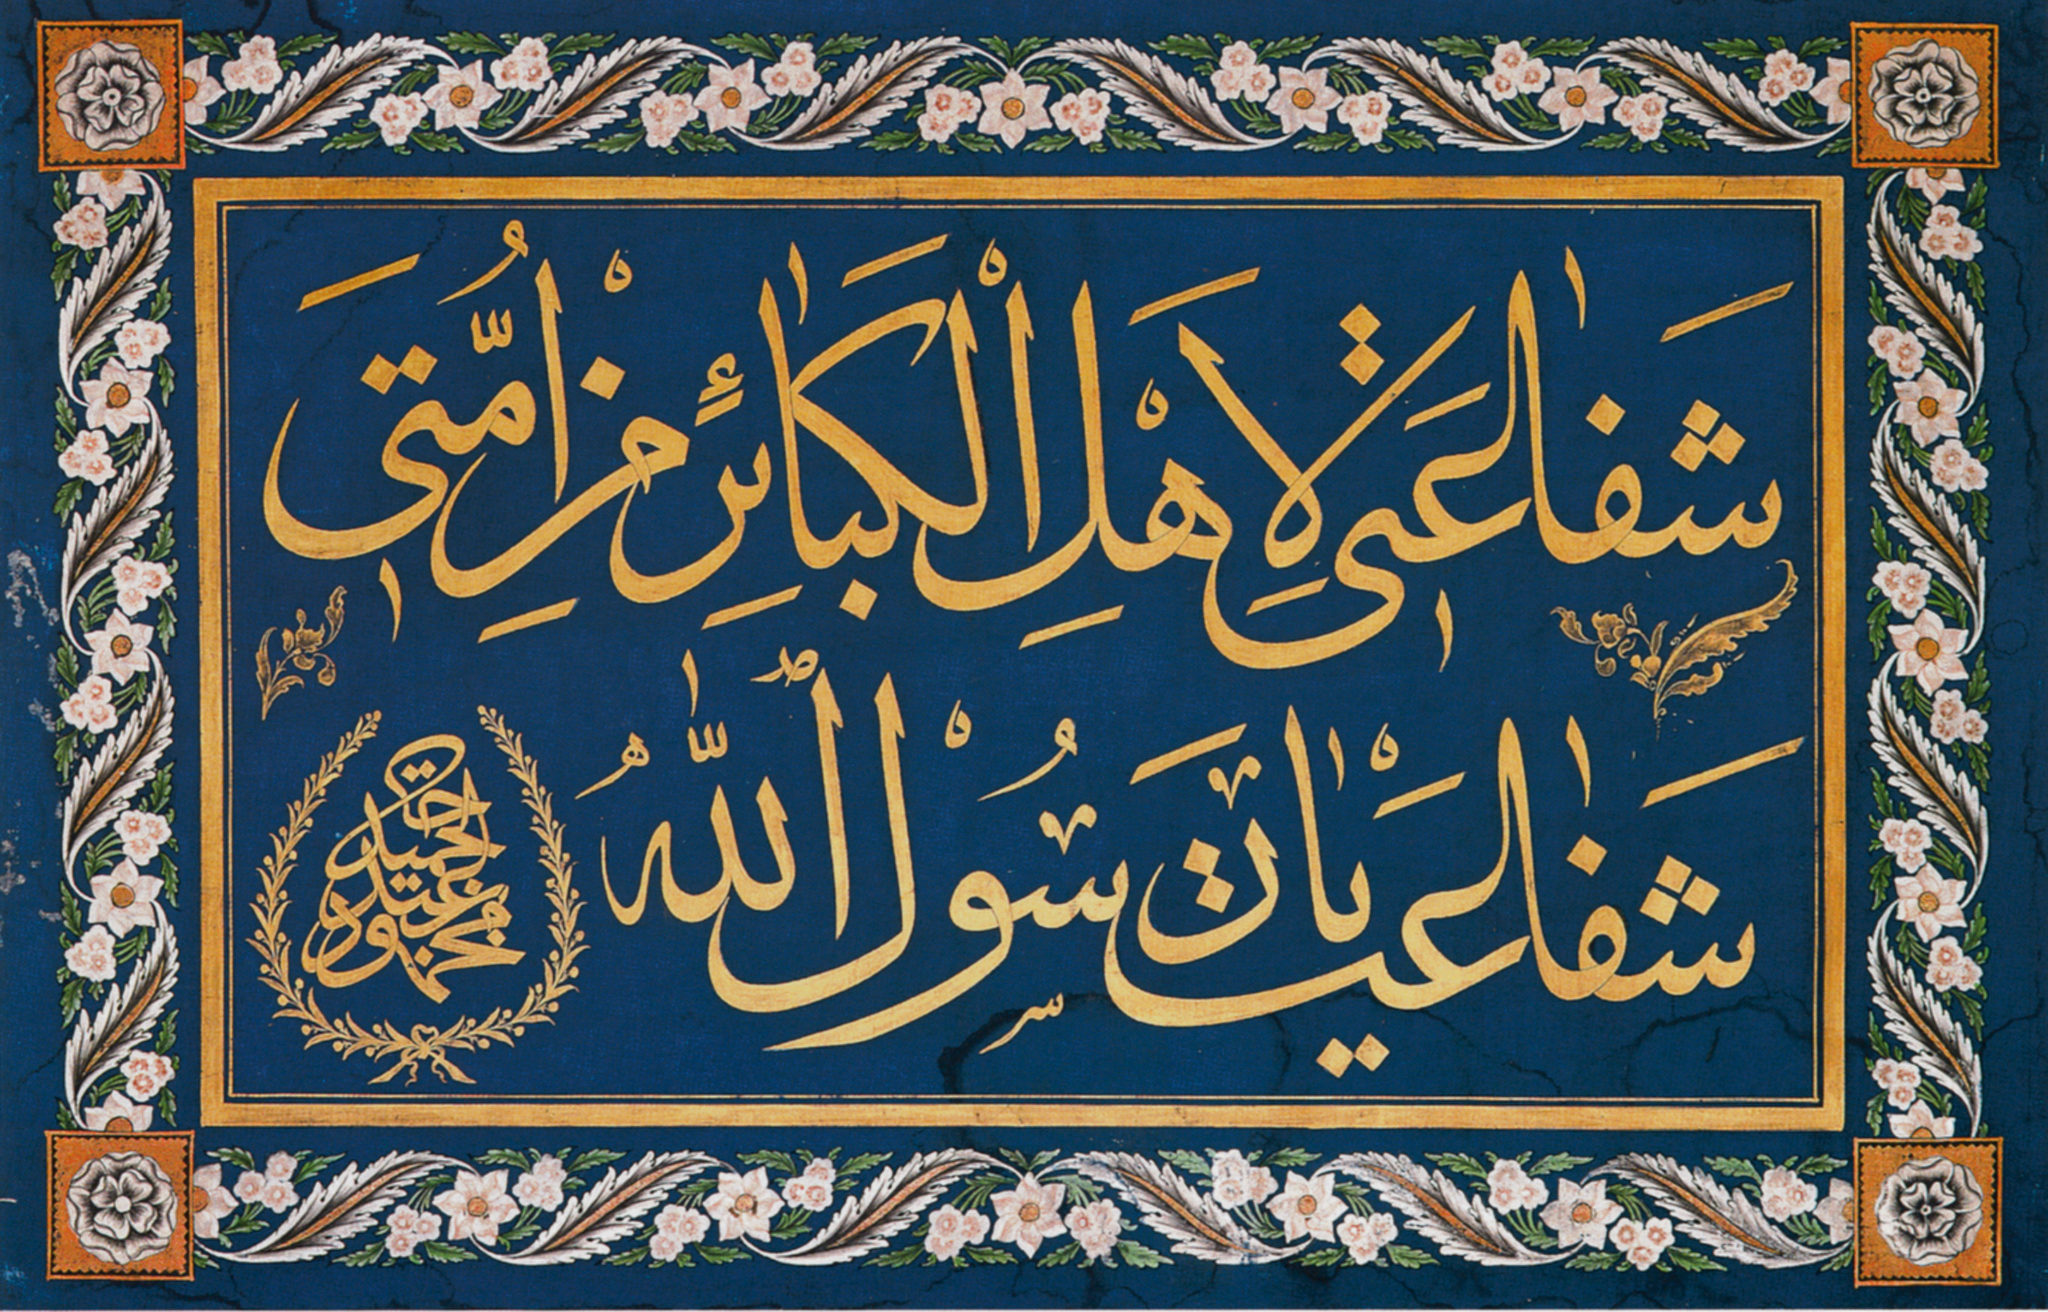 شَفَاعَتى لِاَهْلِ الْكَبَائِرِ مِنْ اُمَّتى
شَفَاعَتْ يَا رَسُولَ اللّٰه
محمود بن عبد الحميد خان